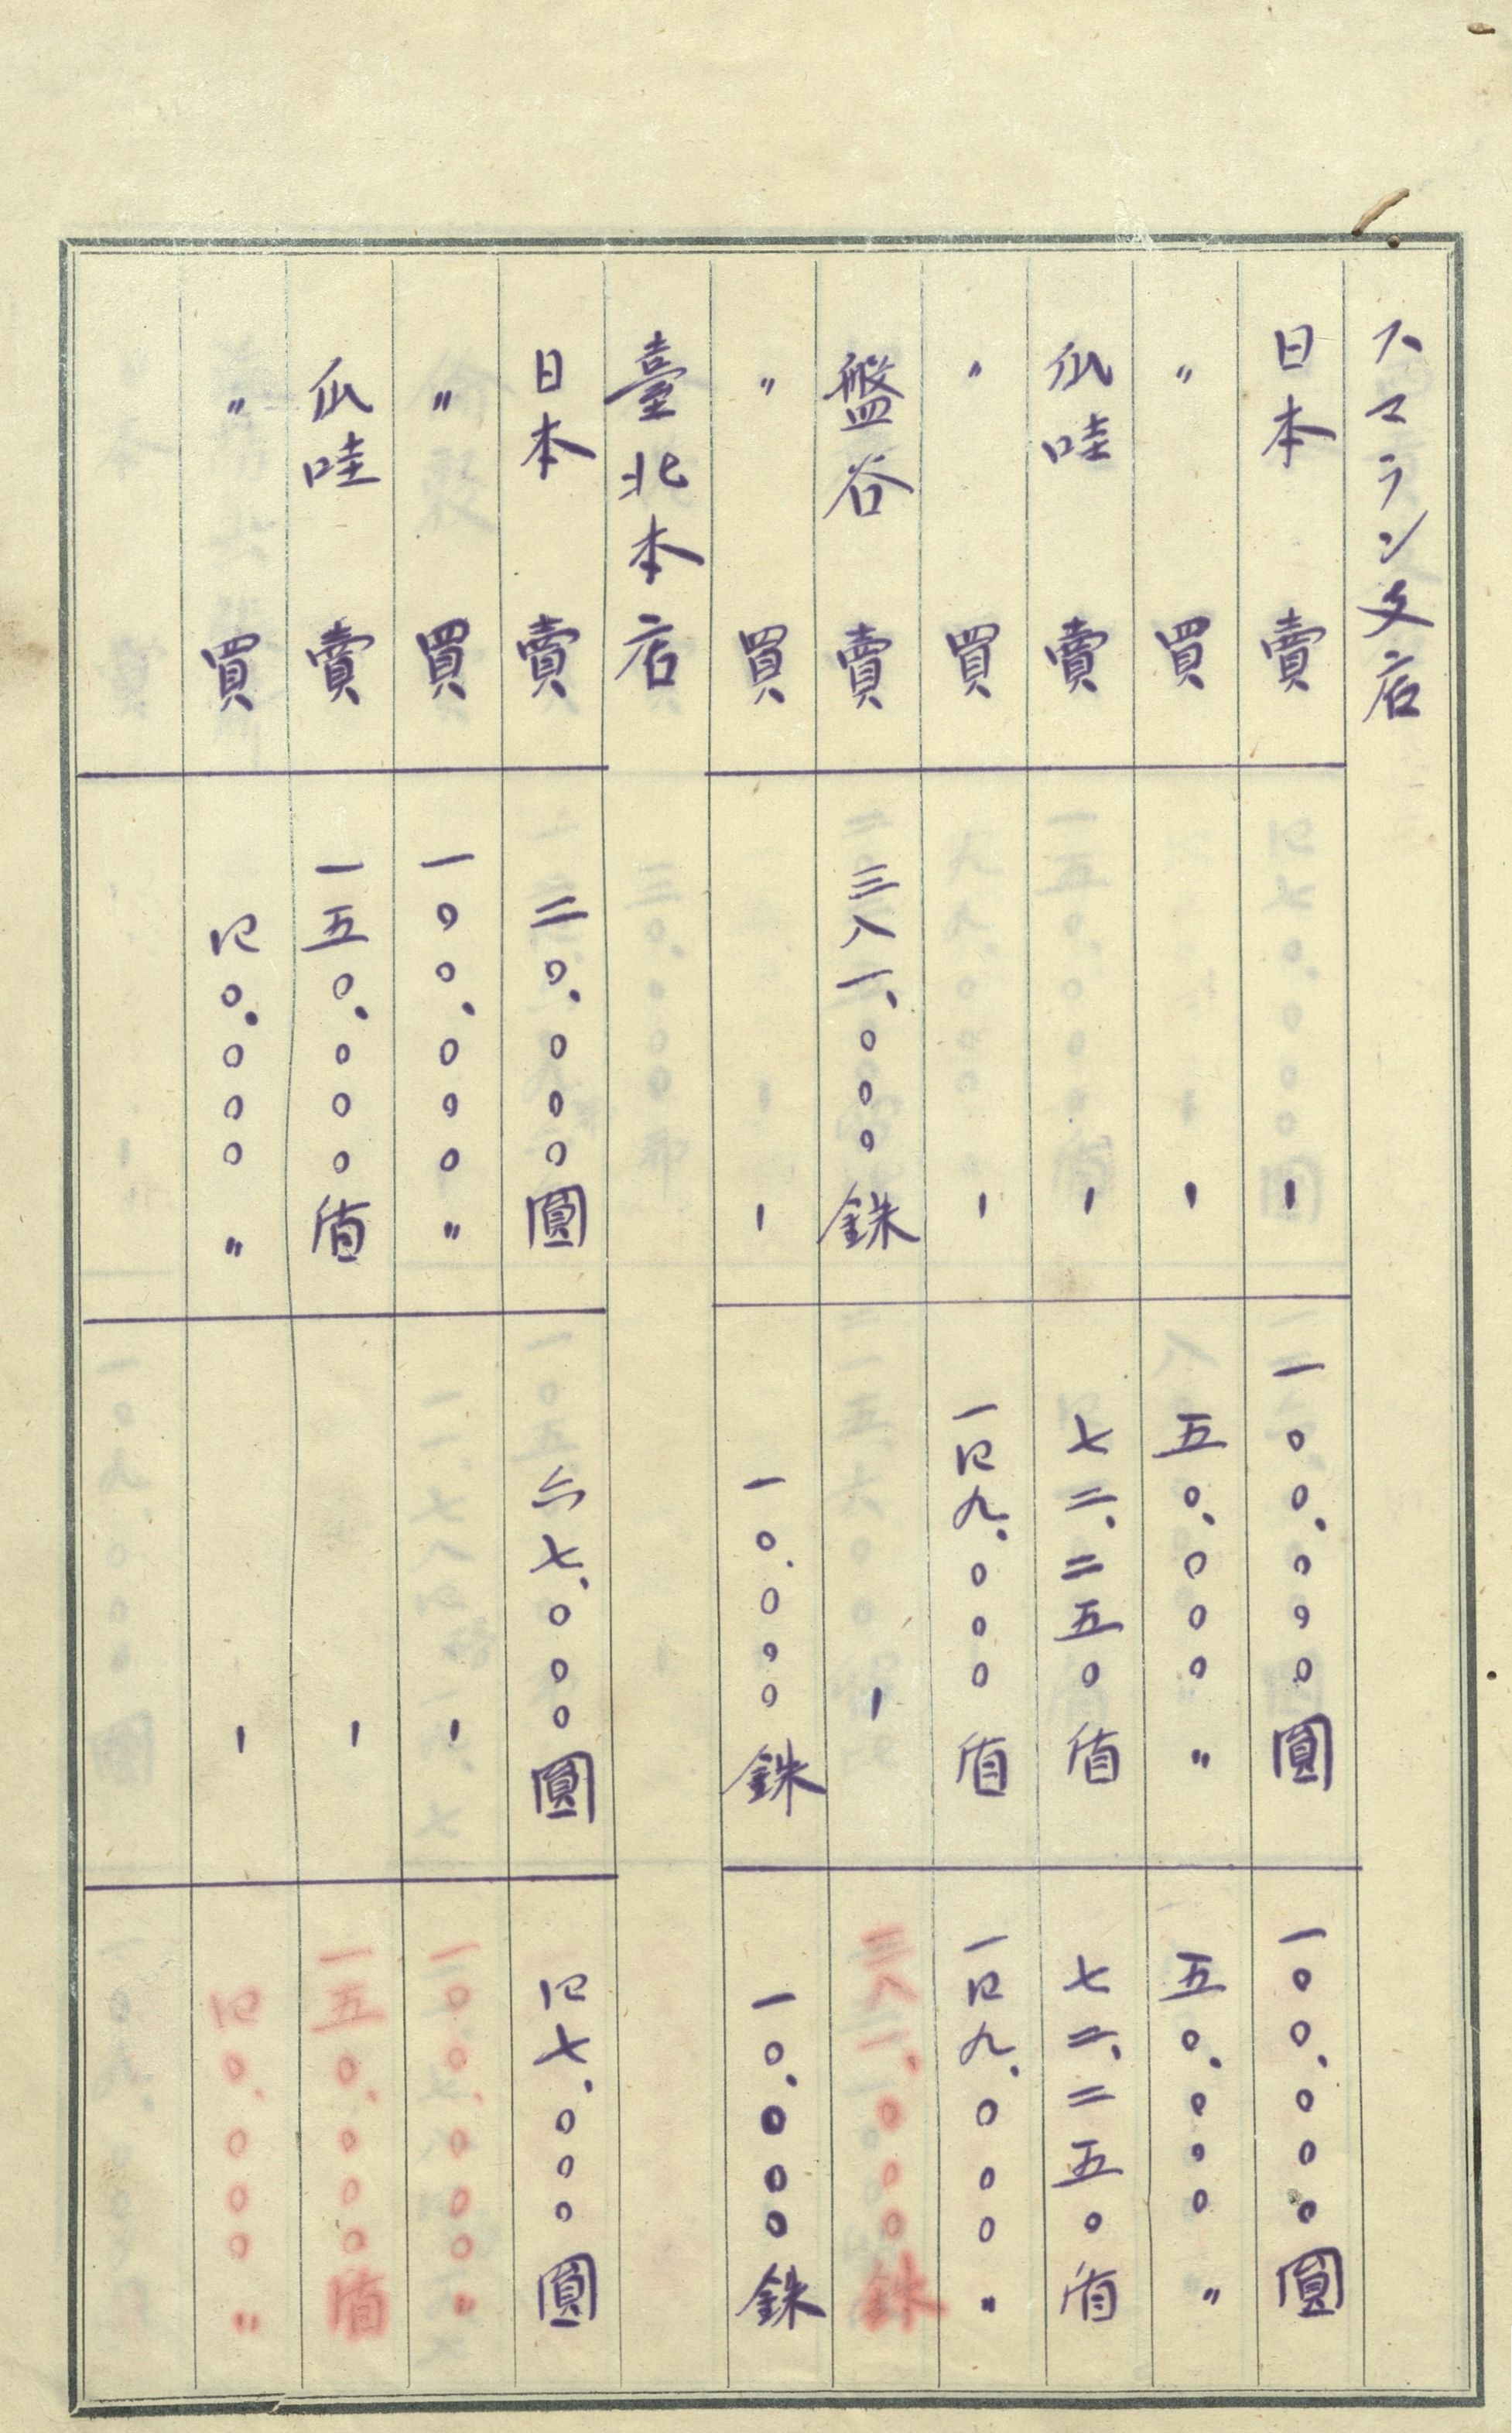 スマラン支店
日本 賣 - 一〇〇、〇〇〇圓 一〇〇、〇〇〇圓
〃 買 - 五〇、〇〇〇〃 五〇、〇〇〇〃
瓜哇 賣 - 七二、二五〇盾 七二、二五〇盾
〃 買 - 一四九、〇〇〇盾 一四九、〇〇〇〃
盤谷 賣 三八一、〇〇〇銖 - 三八一、〇〇〇銖
〃 買 - 一〇、〇〇〇銖 一〇、〇〇〇銖
臺北本店
日本 賣 二〇、〇〇〇圓 六七、〇〇〇圓 四七、〇〇〇圓
〃 買 一〇〇、〇〇〇〃 - 一〇〇、〇〇〇〃
瓜哇 賣 一五〇、〇〇〇盾 - 一五〇、〇〇〇盾
〃 買 四〇、〇〇〇〃 - 四〇、〇〇〇〃